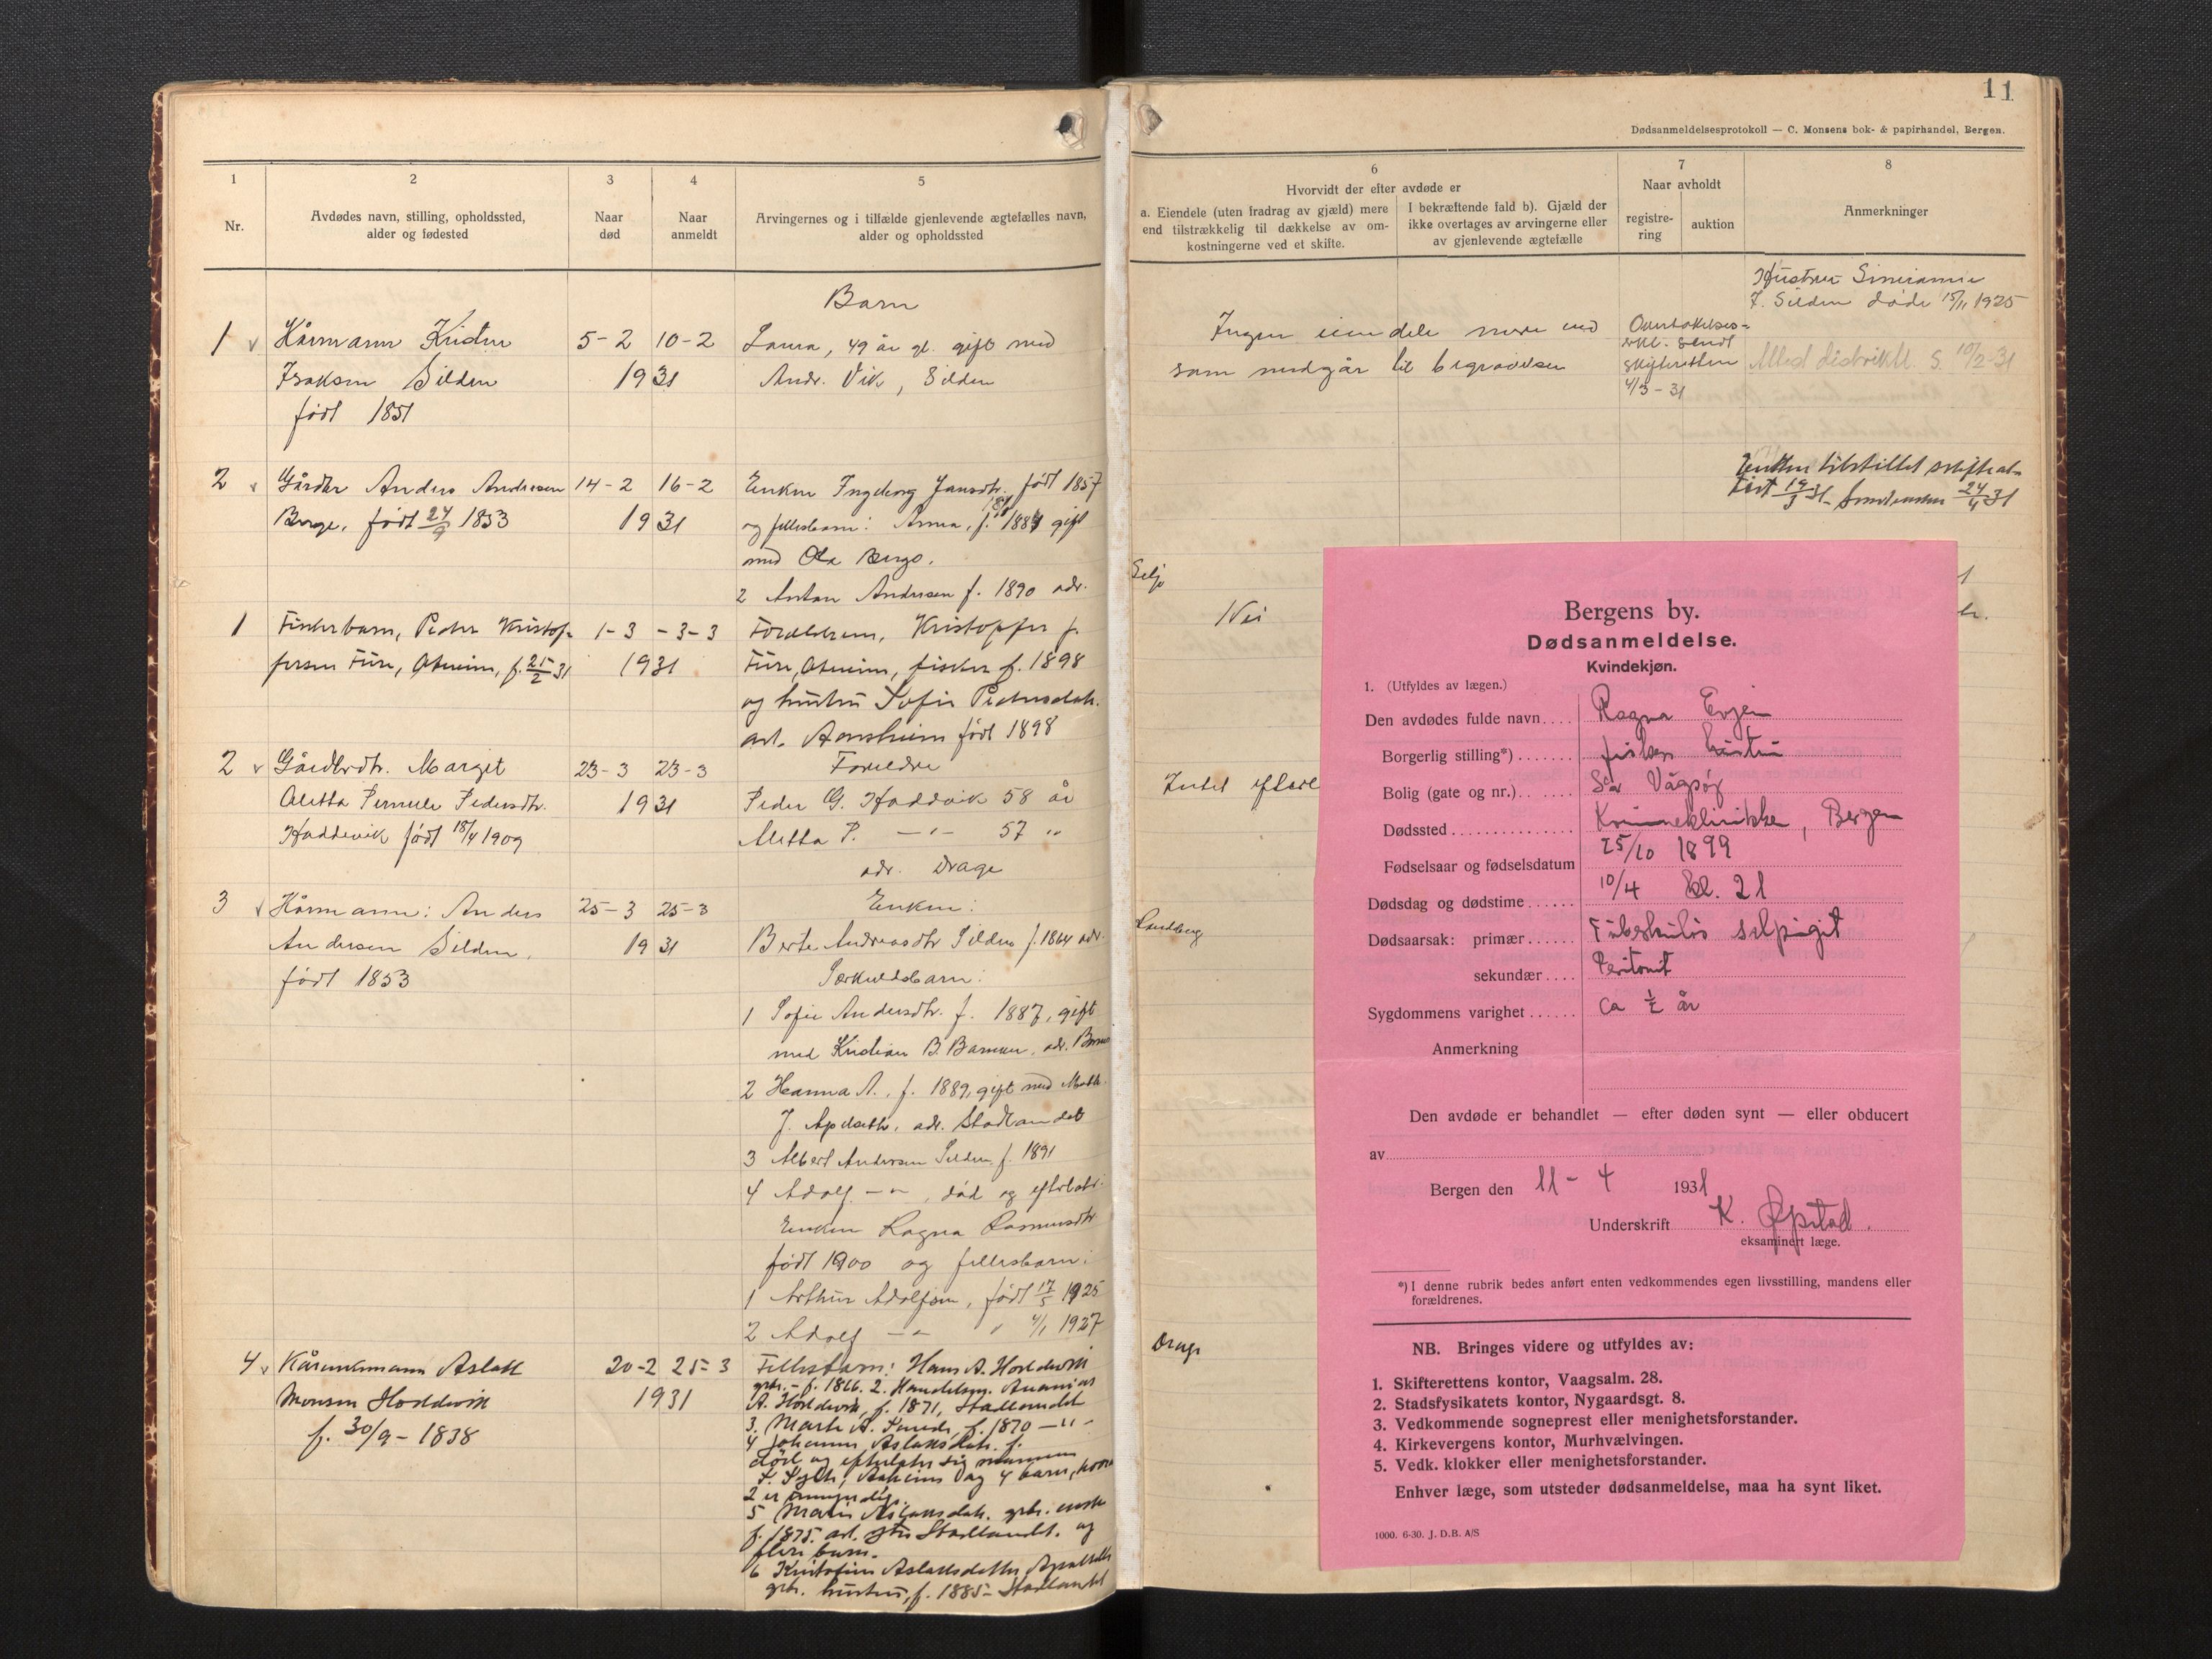 11
Dødsanmeldelsesprotokoll — C. Monsens bok- & papirhandel, Bergen.
1
Nr.
2
Avdødes navn, stilling, opholdssted,
alder og fødested
3
Naar
død
4
Naar
anmeldt
5
Arvingernes og i tilfælde gjenlevende ægtefælles navn,
alder og opholdssted
6
Hvorvidt der efter avdøde er
a. Eiendele (uten fradrag av gjæld) mere
end tilstrækkelig til dækkelse av om-
kostningerne ved et skifte.
I bekræftende fald b). Gjæld der
ikke overtages av arvingerne eller
av gjenlevende ægtefælle
7
Naar avholdt
registre-
ring
auktion
8
Anmerkninger
Barn
1 v Kårmann Kristen 5-2 10-2 Laura, 49 år gl. gift med
Isaksen Silden 1931 Andr. Vik, Silden
født 1851
Ingen eiendele mere end
som medgår til begravelsen
sendt
skifteretten
4/3-31
Hustru
J. Silden døde 15/11 1925
Meld distriktl. S. 10/2-31
2 v Gårdbr Anders Andersen 14-2 16-2 Enken Ingeborg Jansdtr. født 1857
Berge, født 24/9 1853 1931 og fellesbarn: Anna, f. gift
med Ola Berge.
2 Anton Andersen f. 1890 adr.
Selje
tilstillet skifteat-
19/3 31 24/4 31
1 Fiskerbarn, Peder Kristof- 1-3 -3-3 Foreldrene, Kristoffer P.
fersen Fure, Aaheim, f. 25/2 31 1931 Fure, Aaheim, fisker f. 1898
og hustru Sofie Pedersdatr.
født 1898
Nei
2 v Gårdbrdtr. Margit 23-3 23-3 Foreldre
Aletta Pernille Pedersdtr. 1931 Peder G. Hoddevik 58 år
Hoddevik født 18/4 1909 Aletta P. -"- 57 "
adr. Drage
Intet efterl
3 v Kårmann: Anders 25-3 25-3 Enken:
Andersen Silden, 1931 Berte Andreasdtr Silden f. 1864 adr.
født 1853 Særkuldsbarn:
1 Sofie Andersdtr. f. 1887, gift
med Kristian B. Barmen, adr.
2 Hanna A., f. 1889, gift med
J. Apelseth, adr. Stadlandet
3 Albert Andersen Silden f. 1891
4 Adolf -"-, død og efterlatt:
Enken Ragna Rasmusdtr
født 1900 og fellesbarn:
1 Arthur Adolfsen, født 17/5 1925
2 Adolf -"- " 4/1 1927
Drage
4 v Kårenkemann Aslak 20-2 25-3 Fellesbarn: Hans A. Hoddevik
Monsen Hoddevik 1931 gbr. - f. 1866. 2. Handelsm. Ananias
f. 30/9 - 1838 A. Hoddevik, f. 1871, Stadlandet
3. Marte A. f. 1870 -"-
4 Johanne Aslaksdatr. f.
død og efterlater sig mannen
Aaheim og 4 barn, hvorav
2 er umyndige.
5 Marie Aslaksdatr. gbr. enke
f. 1875. Stadlandet. og
flere barn.
6 Kristofine Aslaksdatter
gbr. hustru, f. 1885 - Stadlandet
Bergens by.
Dødsanmeldelse.
Kvindekjøn.
1. (Utfyldes av lægen.)
Den avdødes fulde navn.... Ragna Evjen
Borgerlig stilling*)....... fiskers hustru
Bolig (gate og nr.)...... Sør Vågsøy
Dødssted............... Kvinneklinikken, Bergen
Fødselsaar og fødselsdatum 25/10 1899
Dødsdag og dødstime...... 10/4 kl. 21
Dødsaarsak: primær...... Tuberkuløs salpingit
sekundær.... Peritonit
Sygdommens varighet...... ca ½ år
Anmerkning
Den avdøde er behandlet — efter døden synt — eller obducert
av
Bergen den 11-4 1931
Underskrift K. Øpstad.
eksaminert læge.
*) I denne rubrik bedes anført enten vedkommendes egen livsstilling, mandens eller
forældrenes.
NB. Bringes videre og utfyldes av:
1. Skifterettens kontor, Vaagsalm. 28.
2. Stadsfysikatets kontor, Nygaardsgt. 8.
3. Vedkommende sogneprest eller menighetsforstander.
4. Kirkevergens kontor, Murhvælvingen.
5. Vedk. klokker eller menighetsforstander.
Enhver læge, som utsteder dødsanmeldelse, maa ha synt liket.
1000. 6-30. J. D. B. A/S